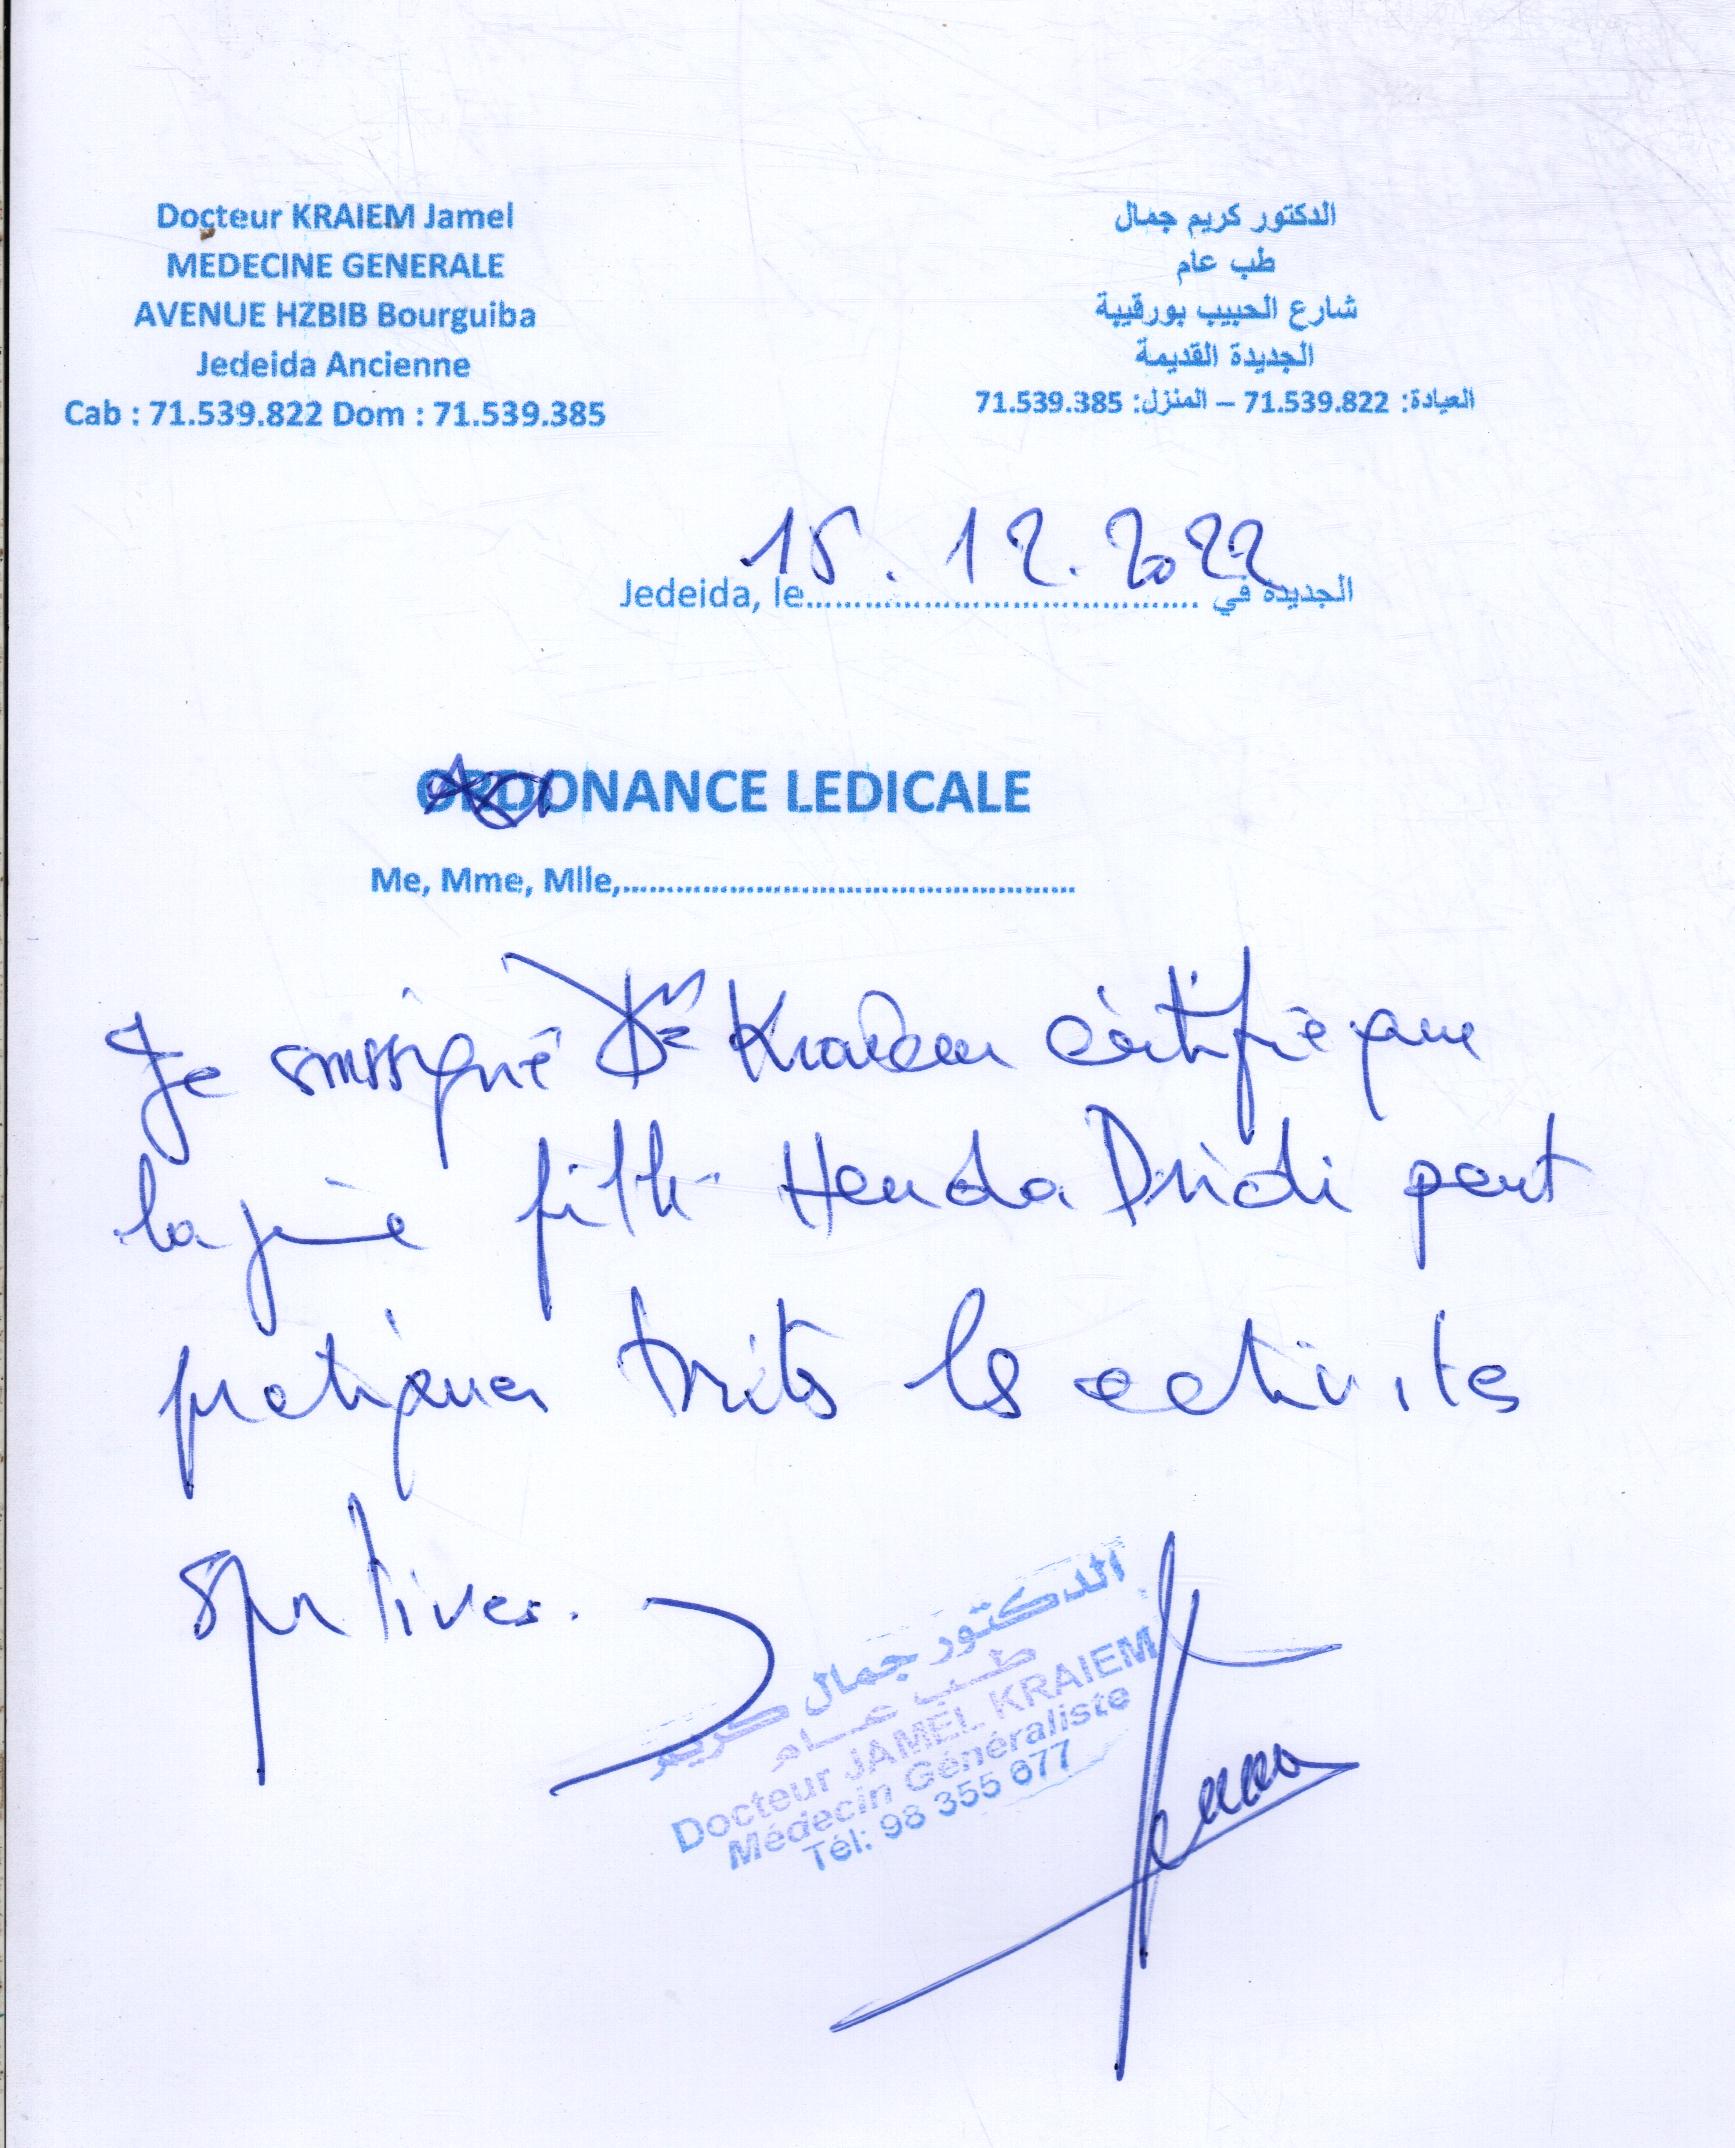 Docteur KRAIEM Jamel
MEDECINE GENERALE
AVENUE HZBIB Bourguiba
Jedeida Ancienne
Cab : 71.539.822 Dom : 71.539.385
الدكتور كريم جمال
طب عام
شارع الحبيب بورقيبة
الجديدة القديمة
العيادة: 71.539.822 – المنزل: 71.539.385
Jedeida, le 15.12.2022 الجديدة في
ORDONANCE LEDICALE
Me, Mme, Mlle,
Je soussigné Dr Kraiem certifie que
la jeune fille Henda Dridi peut
pratiquer toutes les activités
sportives.
الدكتور جمال كريم
طب عام
Docteur JAMEL KRAIEM
Médecin Généraliste
Tél: 98 355 077